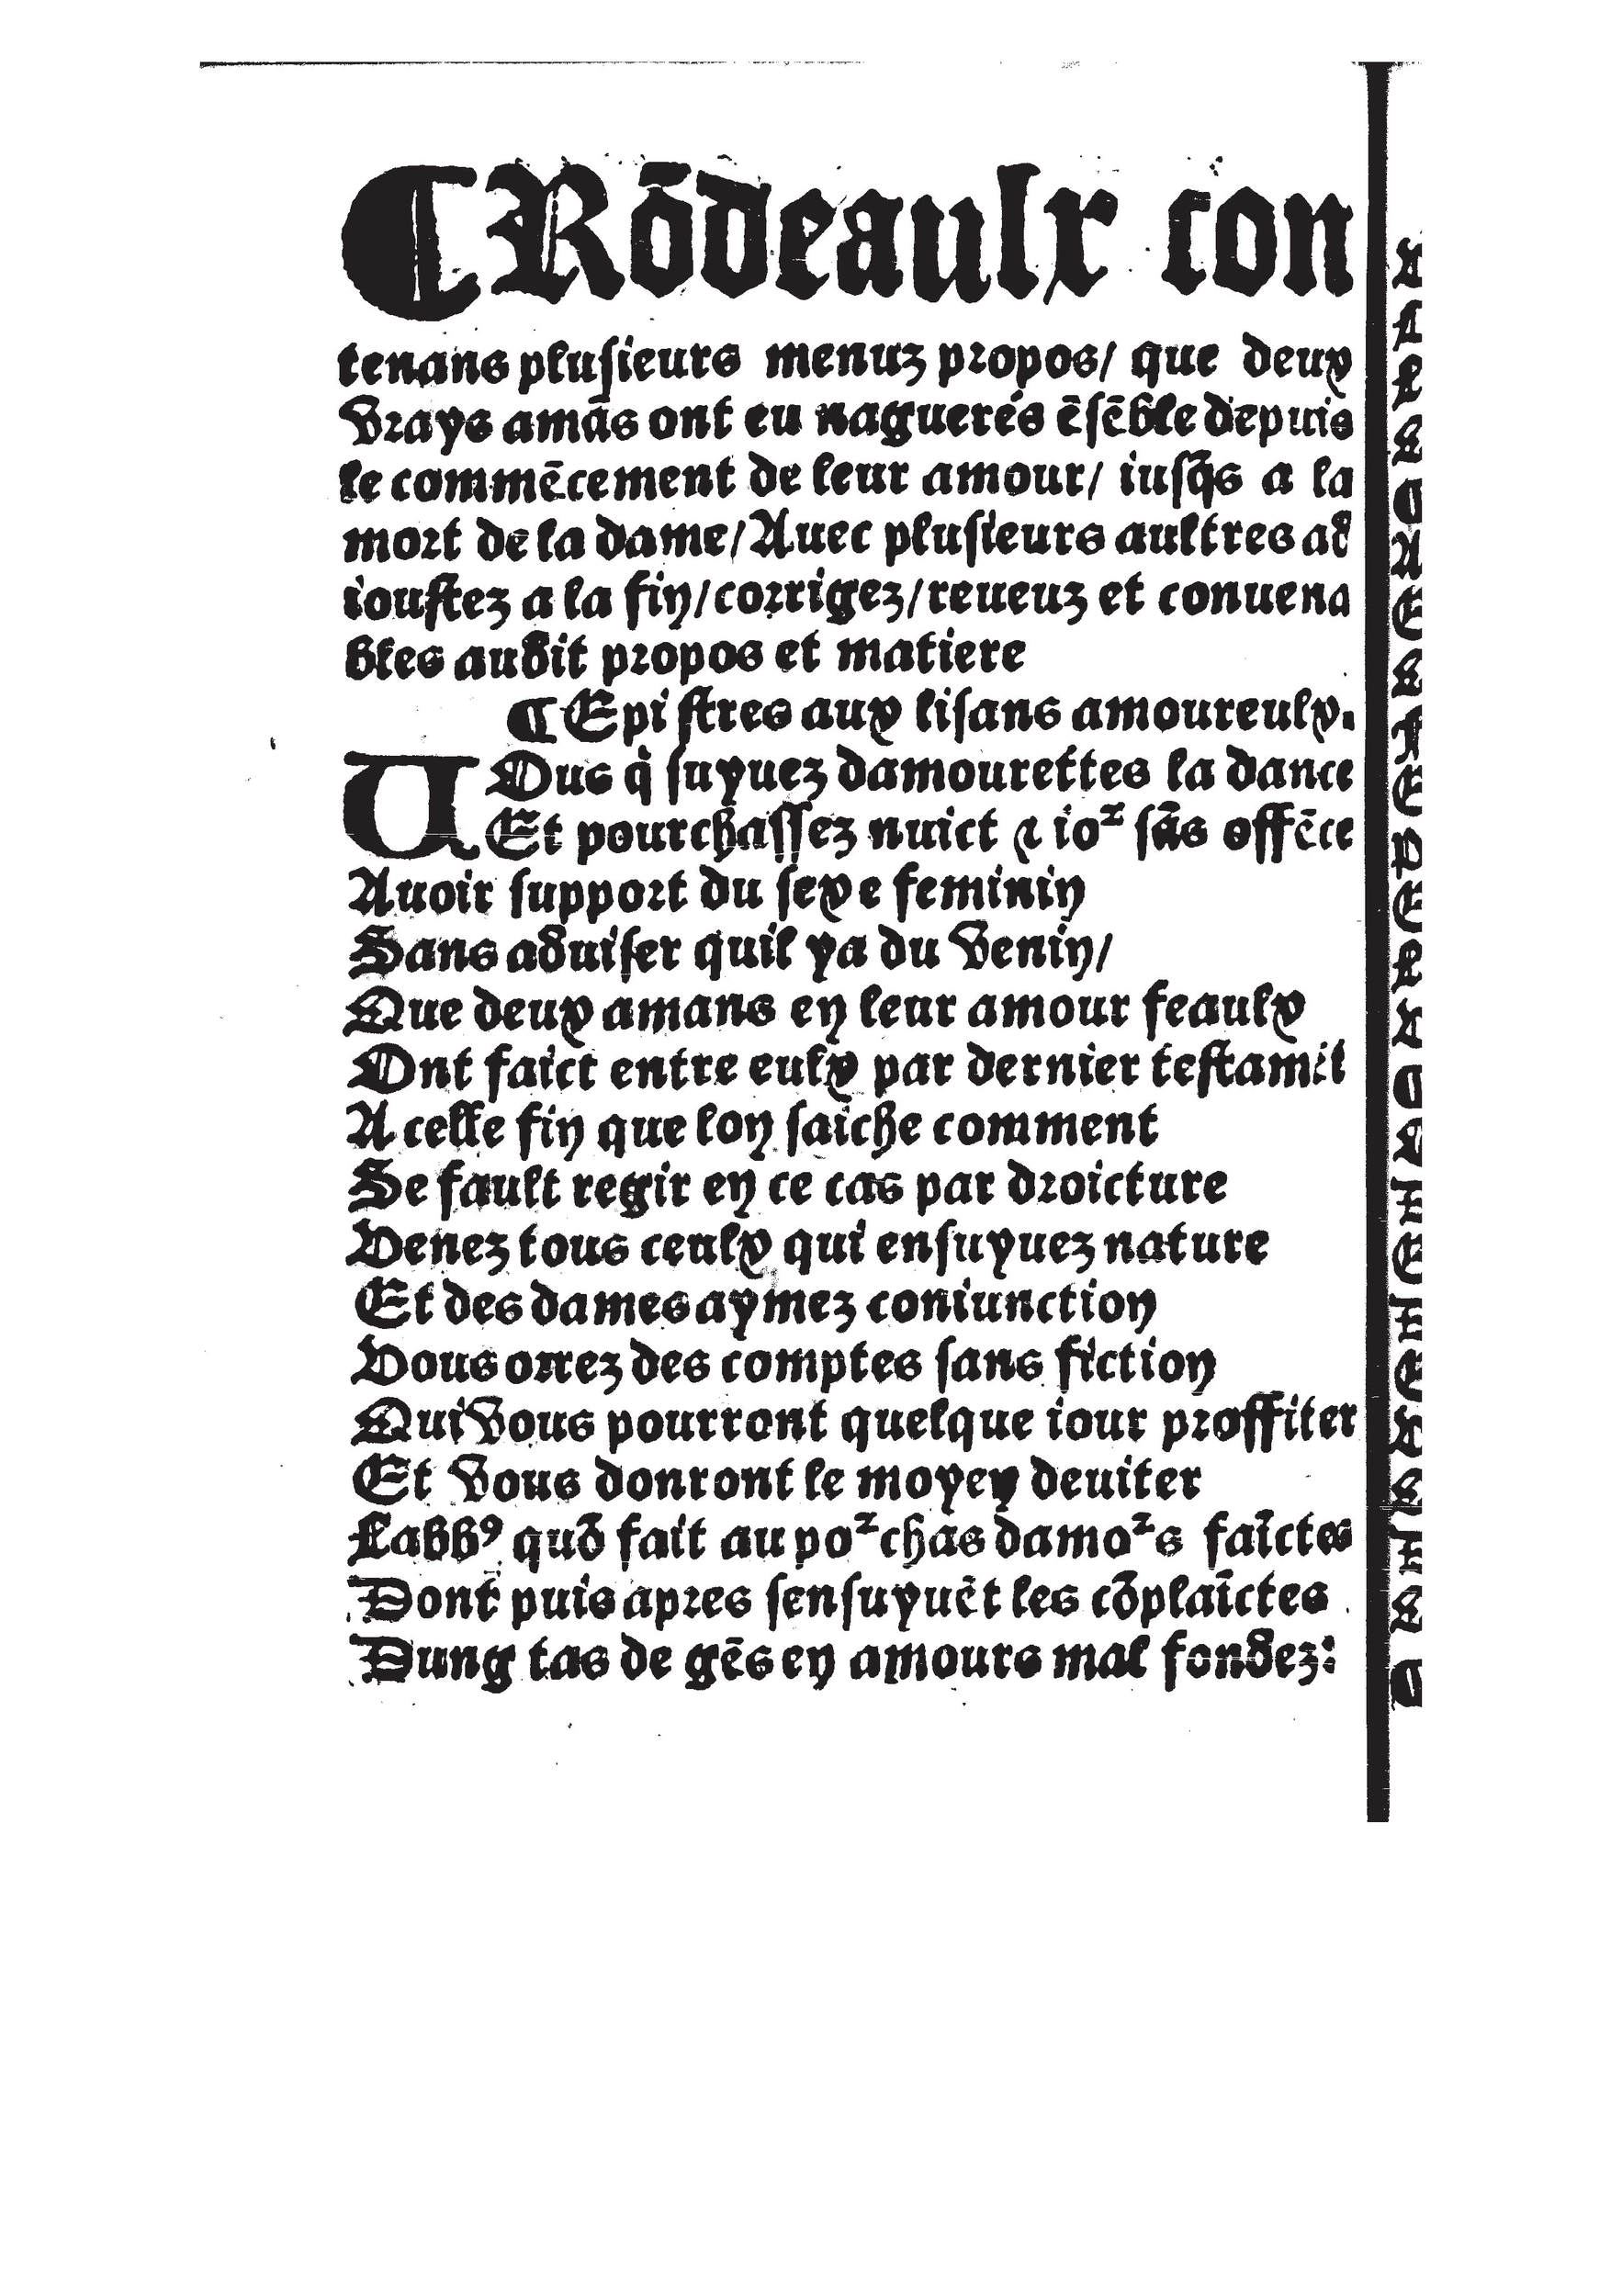 ¶Rōdeaulx con
tenans plusieurs menuz propos/ que deux
vrays amās ont eu nagueres ēsēble depuis
le commēcement de leur amour/ iusq̄s a la
mort de la dame/Auec plusieurs aultres ad
ioustez a la fin/corrigez/reueuz et conuena
bles audit propos et matiere
¶Epistres aux lisans amoureulx.
VOus q̇ suyuez damourettes la dance
Et pourchassez nuict & ioᷣ sās offēce
Auoir support du sexe feminin
Sans aduiser quil ya du venin/
Que deux amans en leur amour feaulx
Ont faict entre eulx par dernier testamēt
A celle fin que lon saiche comment
Se fault regir en ce cas par droicture
Venez tous ceulx qui ensuyuez nature
Et des dames aymez coniunction
Vous orrez des comptes sans fiction
Qui vous pourront quelque iour proffiter
Et vous donront le moyen deuiter
Labbꝰ quō fait au poᷣchas damoᷣs faīctes
Dont puis apres sensuyuēt les cōplaīctes
Dung tas de gēs en amours mal fondez: